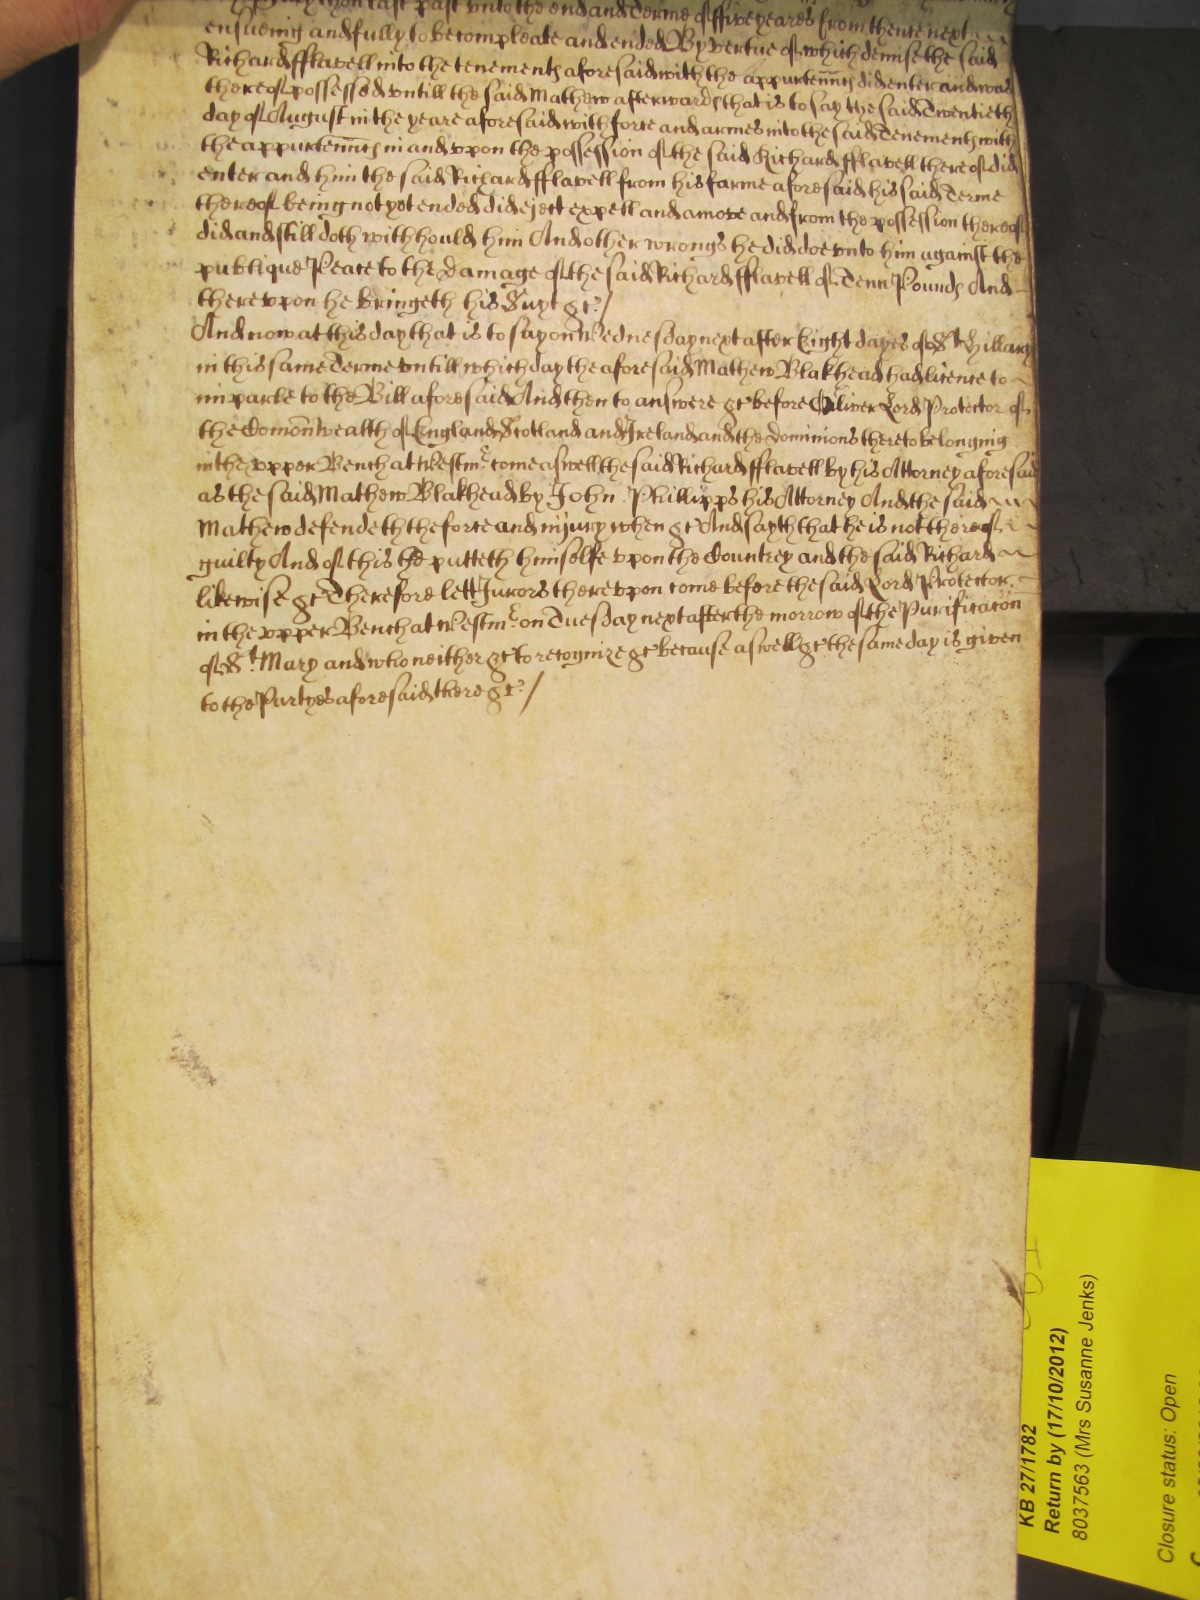 then last past unto the end and Terme of ffive yeares from thence next
ensueing and fully to be compleate and ended By vertue of which demise the said
Richard fflavell into the tenements aforesaid with the appurtennts did enter and was
thereof possessed untill the said Mathew afterwards that is to say the said Twentieth
day of August in the yeare aforesaid with force and armes into the said Tenements with
the appurtennts in and upon the possession of the said Richard fflavell thereof did
enter and him the said Richard fflavell from his farme aforesaid his said Terme
thereof being not yet ended did eject expell and amove and from the possession thereof
did and still doth withhould him And other wrongs he did doe unto him against the
publique Peace to the Damage of the said Richard fflavell of Tenn Pounds And
thereupon he bringeth his Suyt &c /
And now at this day that is to say on Wednesday next after Eight dayes of St Hillary
in this same Terme untill which day the aforesaid Mathew Blakhead had licence to
imparle to the Bill aforesaid And then to answere &c before Oliver Lord Protector of
the Comonwealth of England Scotland and Ireland and the Dominions thereto belonging
in the upper Bench at Westmr come aswell the said Richard fflavell by his Attorney aforesaid
as the said Mathew Blakhead by John Phillipps his Attorney And the said
Mathew defendeth the force and injury when &c And sayth that he is not thereof
guilty And of this he putteth himselfe upon the Countrey and the said Richard
likewise &c Therefore lett Jurors thereupon come before the said Lord Protector
in the upper Bench at Westmr on Tuesday next after the morrow of the Purificacon
of St Mary and who neither &c to recognize &c because aswell &c the same day is given
to the Partyes aforesaid there &c /
KB 27/1782
Return by (17/10/2012)
8037563 (Mrs Susanne Jenks)
Closure status: Open